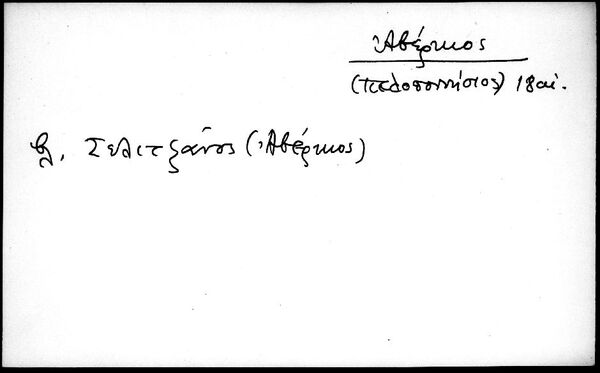 Ἀβέρκιος
(Πελοποννήσιος) 18 αἰ.
βλ. Σελιτζᾶνος (Ἀβέρκιος)